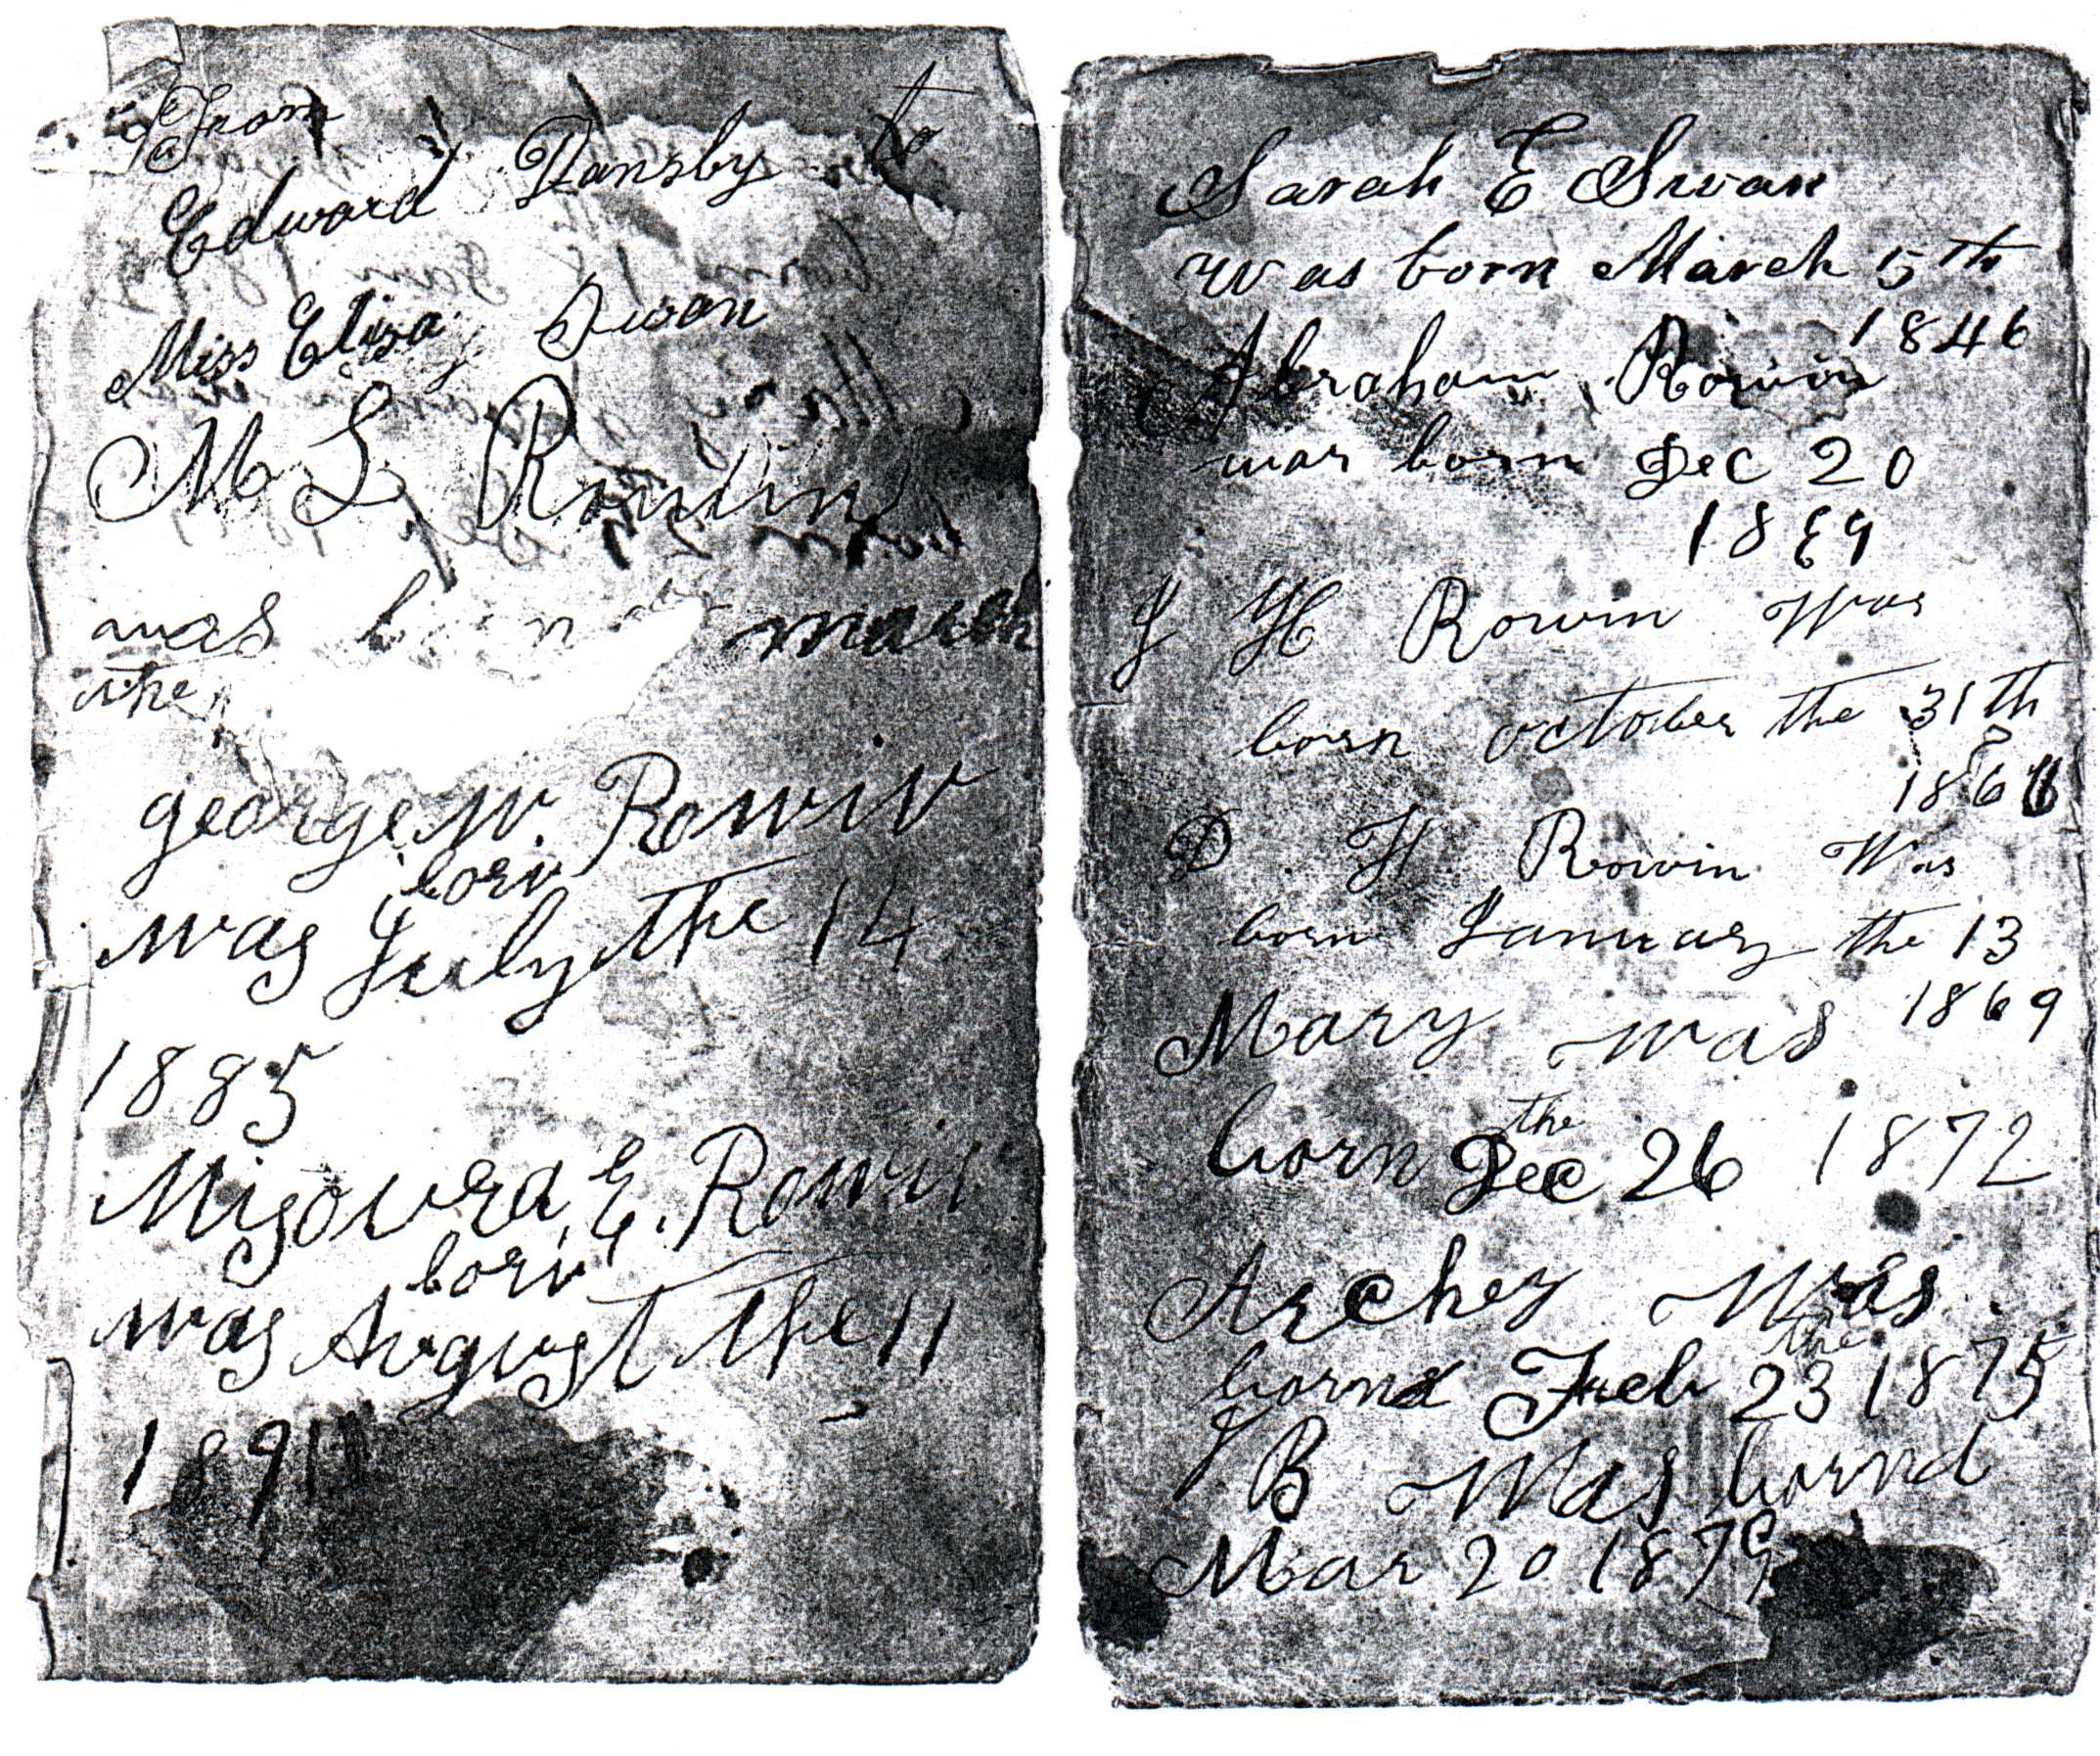 From
Edward Dansby to
Miss Eliza Swan
M L Rowin
was born march
the
george W. Rowin
born
was July the 14
1885
Misoura E. Rowin
born
was August the 11
1891
Sarah E Swan
was born March 5th
1846
Abraham Rowin
was born Dec 20
1869
J H Rowin Was
born october the 31th
186
D H Rowin Was
born January the 13
1869
Mary was
the
born Dec 26 1872
Archey Was
the
bornd Feb 23 1875
J B Was bornd
Mar 20 1879